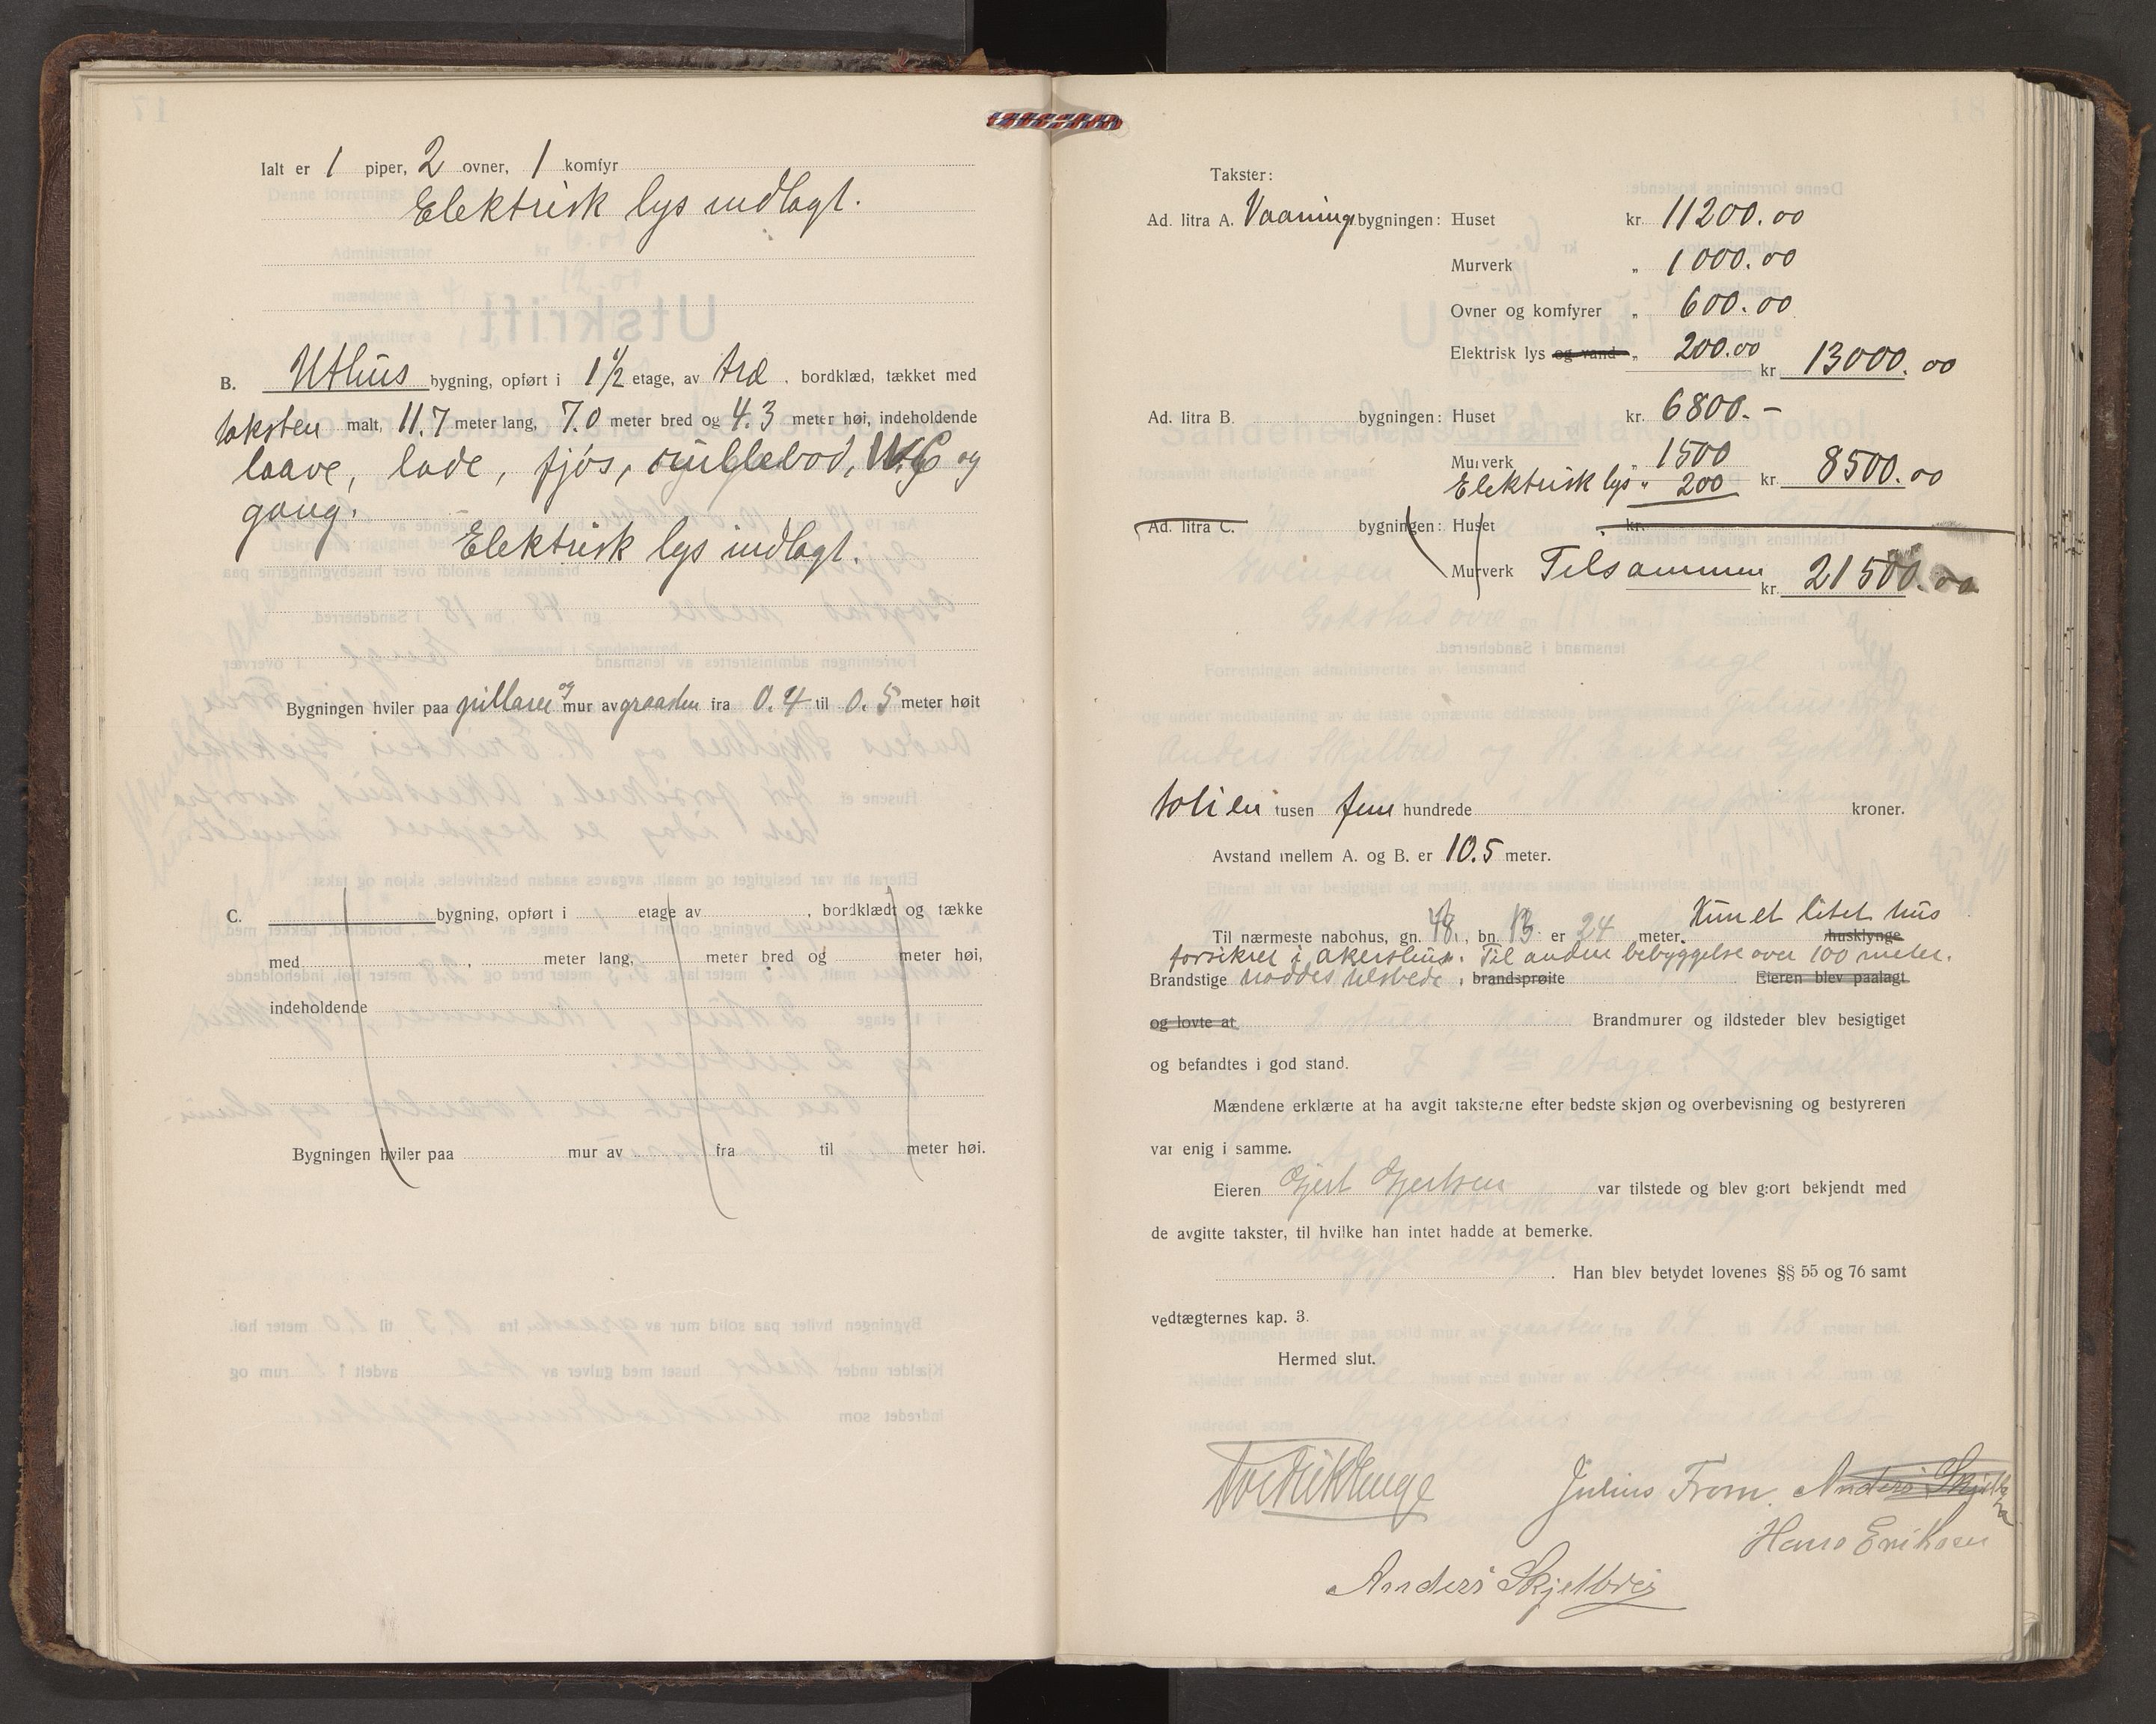 Ialt er 1 piper, 2 ovner, 1 komfyr
Elektrisk lys indlagt.
B. Uthus bygning, opført i 1 1/2 etage, av træ, bordklæd, tækket med
taksten malt, 11.7 meter lang, 7.0 meter bred og 4.3 meter høi, indeholdende
laave, lade, fjøs, W.C og
gang.
Elektrisk lys indlagt.
Bygningen hviler paa pillarer og mur av graasten fra 0.4 til 0.5 meter høit
C. bygning, opført i etage av , bordklædt og tække
med , meter lang, meter bred og meter høi,
indeholdende
Bygningen hviler paa mur av fra til meter høi.
Takster:
Ad. litra A. Vaanings bygningen: Huset kr. 11200.00
Murverk " 1000.00
Ovner og komfyrer " 600.00
Elektrisk lys og vand " 200.00 kr. 13000.00
Ad. litra B. bygningen: Huset kr. 6800.-
Murverk " 1500
Elektrisk lys " 200 kr. 8500.00
Ad. litra C. bygningen: Huset kr.
Murverk Tilsammen kr. 21500.00
toti en tusen fem hundrede kroner.
Avstand mellem A. og B. er 10.5 meter.
Til nærmeste nabohus, gn. 48, bn. 13 er 24 meter. Kun et litet hus husklynge
forsikret i Akershus. Til anden bebyggelse over 100 meter.
Brandstige haddes tilstede, brandsprøite Eieren blev paalagt
og lovte at Brandmurer og ildsteder blev besigtiget
og befandtes i god stand.
Mændene erklærte at ha avgit taksterne efter bedste skjøn og overbevisning og bestyreren
var enig i samme.
Eieren Gjert Gjertsen var tilstede og blev gjort bekjendt med
de avgitte takster, til hvilke han intet hadde at bemerke.
. Han blev betydet lovenes §§ 55 og 76 samt
vedtægternes kap. 3.
Hermed slut.
Julius From. Anders Skjelbre
Hans Eriksen
Anders Skjelbrei